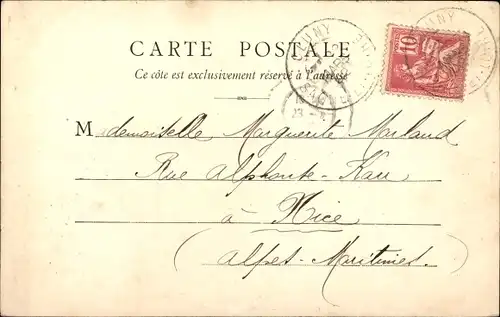 CARTE POSTALE
Ce côté est exclusivement réservé à l'adresse
CLUNY
10
CLUNY
Mademoiselle Marguerite Marland
Rue Alphonse-Karr
à Nice
(Alpes-Maritimes.)